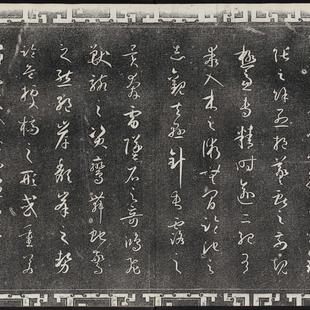 張之餘烈挹羲獻之前規
極慮專精時逾二紀有
乖入木之術無間臨池之
志觀夫懸針垂露之
異奔雷墜石之奇鴻飛
獸駭之資鸞舞蛇驚
之態絕岸頹峰之勢
臨危據槁之形或重若